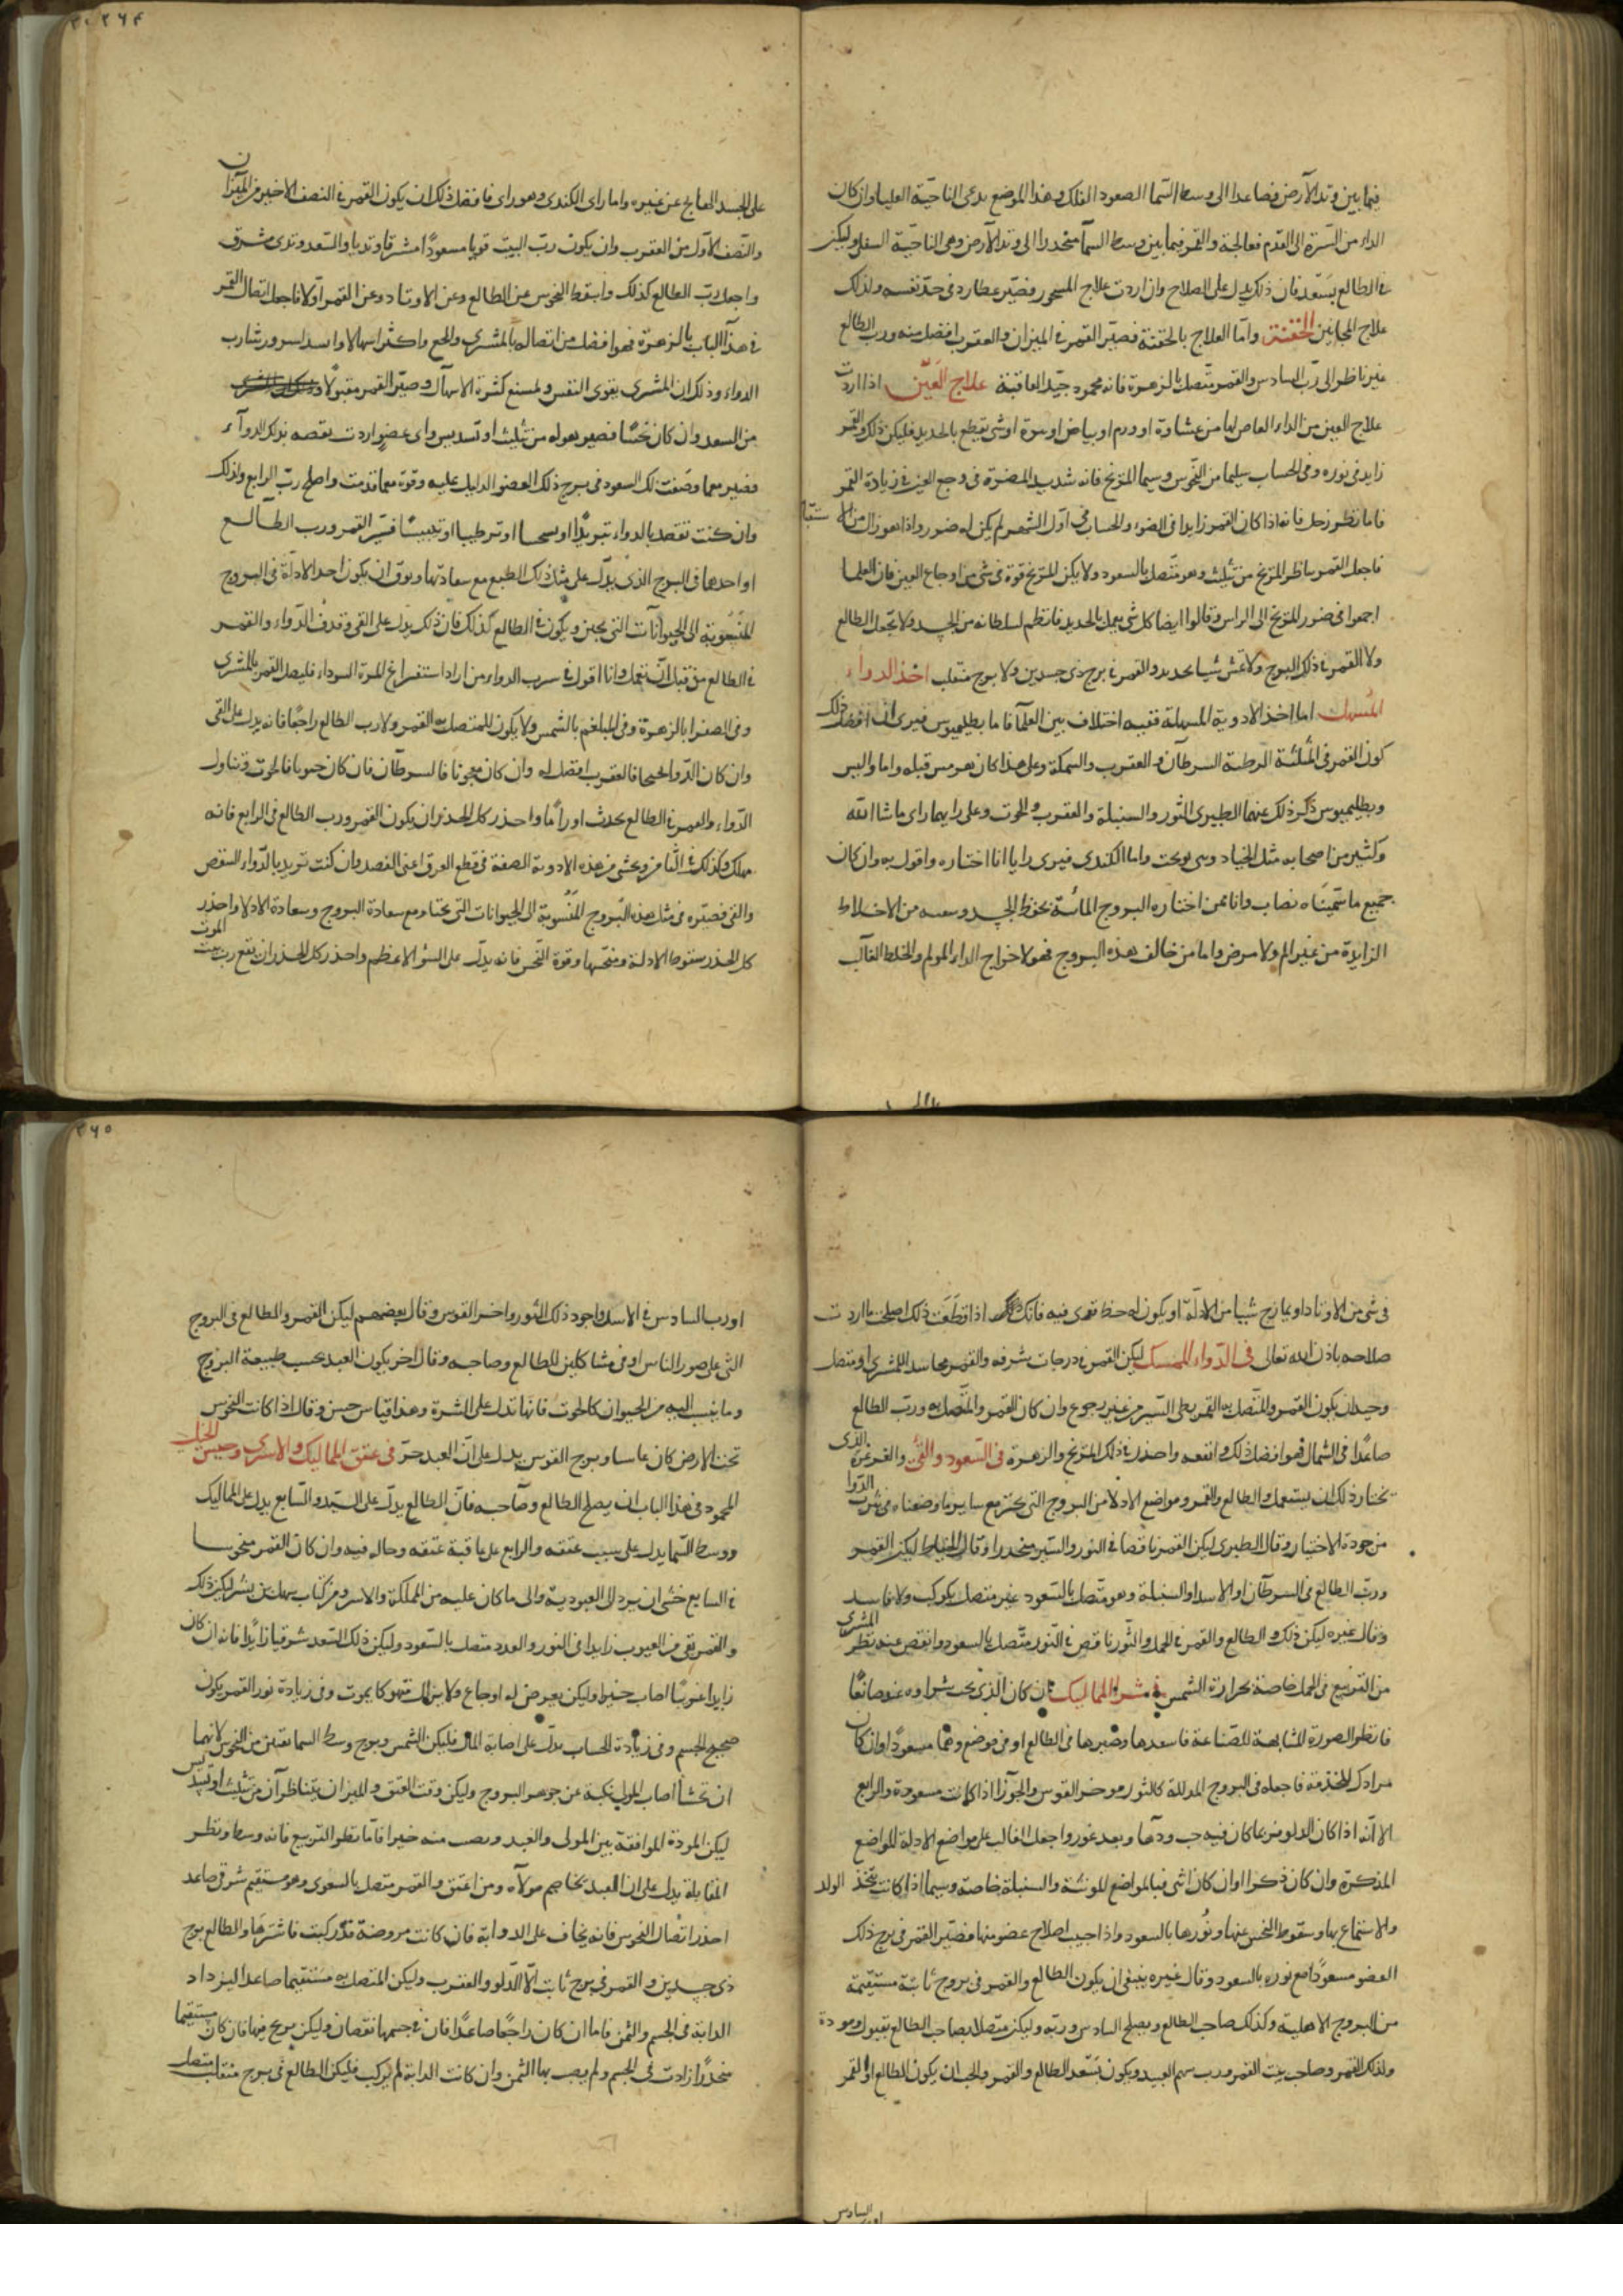 فيما بين وتد الارض فصاعدا الى وسط السما الصعود الفلك وهذا الموضع يدعى الناحية العليا وان كان
الداء من السرة الى القدم فعالجة والقمر فيما بين وسط السما منحدرا الى وتد الارض وهى الناحية السفلى وليكن
فى الطالع بسعد فان ذلك يدل على الصلاح وان اردت علاج المسحور فصير عطارد فى حد نفسه ولذلك
علاج المجانين الحقنة واما العلاج بالحقنة فصير القمر فى الميزان والعقرب افضل منه ورب الطالع
غير ناظر الى رب السادس والقمر متصل بالزهرة فانه محمود جيد العاقبة علاج العين اذا اردت
علاج العين من الداء العارض لها من غشاوة او ورم او بياض او شى يقطع بالحديد فليكن ذلك والقمر
زايد فى نوره وفى الحساب سليما من النحوس وسيما المريخ فانه شديد المضرة فى وجع العين فى زيادة القمر
فاما نظر زحل فانه اذا كان القمر زايدا فى الضوء والحساب فى اول الشهر لم يكن له ضرر واذا هو زال من
فاجعل القمر يناظر المريخ من تثليث وهو متصل بالسعود ولا يكن للمريخ قوة فى شى من اوجاع العين فان العلما
اجمعوا فى ضرر المريخ الى الراس وقالوا ايضا كل شى يعمل بالحديد فانظم لسلطانه من الجسد ولا تجعل الطالع
ولا القمر فى ذلك البرج ولا تمش شيا بحديد والقمر فى برج ذى جسدين ولا برج منقلب اخذ الدواء
المسهل اما اخذ الادوية المسهلة ففيه اختلاف بين العلما فاما بطليموس فيرى ان افضل ذلك
كون القمر فى المثلثة الرطبة السرطان والعقرب والسمكة وعلى هذا كان هرمس قبله واما واليس
وبطليموس ذكر ذلك عنهما الطبرى الثور والسنبلة والعقرب والحوت وعلى رايهما راى ما شا الله
وكثير من اصحابه مثل الخياط وبنى نوبخت واما الكندى فيرى رايا انا اختاره واقول به وان كان
جميع ما سميناه بصاب وانا ممن اختاره البروج المائية بحفظ الجسد وسعه من الاخلاط
الزايدة من غير الم ولا مرض واما من خالف هذه البروج فهو لاخراج الداء المولم والخلط الغالب
على الجسد المعالج عن غيره واما راى الكندى وهو راى فافضل ذلك ان يكون القمر فى النصف الاخير من الميزان
والنصف الاول من العقرب وان يكون رب البيت قويا مسعودا مشرقا وتديا والسعد وتدى مشرق
واجعل رب الطالع كذلك واسقط النحوس عن الطالع وعن الاوتاد وعن القمر اولا فاجعل اتصال القمر
فى هذا الباب بالزهرة فهو افضل من اتصاله بالمشترى والجح واكثر اسهالا واسد لسرور شارب
الدواء وذلك ان المشترى يقوى النفس ويمنع كثرة الاسهال وصير القمر مقبولا
من السعد وان كان نحسا فصير هوله من تثليث او تسديس واى عضو اردت بقصه بذلك الدواء
فصير معما وصفت لك السعود فى برج ذلك العضو الدليل عليه وقوه معما قدمت واصلح رب الرابع ولذلك
وان كنت تقصد بالدواء تبريدا او تسخينا او ترطيبا او تيبيسا فسير القمر ورب الطالع
او احدهما فى البرج الذى يدل على مثل ذلك الطبع مع سعادتهما ويوق ان يكون احد الادلة فى البروج
المنسوبة الى الحيوانات التى يجتر ويكون فى الطالع كذلك فان ذلك يدل على القى وقذف الدواء والقمر
فى الطالع من قبل ان نعمل وانا اقول فى سرب الدواء من اراد استفراغ المرة السوداء فليصل القمر بالمشترى
وفى الصفرا بالزهرة وفى البلغم بالشمس ولا يكون للمتصل به القمر ولا رب الطالع راجعا فانه يدل على القى
وان كان الدوا لحيحا فالعقرب افضل له وان كان معجونا فالسرطان فان كان حبوبا فالحوت وتناول
الدواء والقمر فى الطالع يحدث اوراما واحذر كل الحذر ان يكون القمر ورب الطالع فى الرابع فانه
مهلك وكذلك فى الثامن ويخشى من هذه الادوية الصعبة فى قطع العرق اعنى الفصد وان كنت تريد بالدواء النقص
والقى فصيره فى مثل هذه البروج المنسوبة الى الحيوانات التى تجتر مع سعادة البروج وسعادة الادلا واحذر
كل الحذر سقوط الادلة ومنحسها وقوة النحس فانه يدل على السؤ الاعظم واحذر كل الحذر ان يقع رب بيت الموت
فى شى من الاوتاد او يمازج شيا من الادلة او يكون له حظ قوى فيه فانك اذا قطعت ذلك اصلحت ما اردت
صلاحه باذن الله تعالى فى الدواء الممسك ليكن القمر فى درجات شرفه والقمر مجاسد للمشترى او متصل
وجيد ان يكون القمر والمتصل به القمر بطى السير من غير رجوع وان كان القمر والمتصل به ورب الطالع
صاعدا فى الشمال فهو افضل ذلك وانفعه واحذر فى ذلك المريخ والزهرة فى السعود والقئ والغرغرة الذى
تختار ذلك ان يستعمل والطالع والقمر ومواضع الادلا من البروج التى تجتر مع ساير ما وصفناه فى شرب الدوا
من جودة الاختيار وقال الطبرى ليكن القمر ناقصا فى النور والسير منحدرا وقال الخياط ليكن القمر
ورب الطالع فى السرطان او الاسد او السنبلة وهو متصل بالسعود غير متصل بكوكب ولا فاسد
وقال غيره ليكن ذلك والطالع والقمر فى الحمل والثور ناقص فى النور متصل بالسعود وانقص عند نظر المشترى
من التربيع فى الحمل خاصة بحرارة الشمس فى شراء المماليك ان كان الذى تحب شراوه عبد صانعا
فانظر الصورة المشابهة للصناعة فاسعدها وصيرها فى الطالع او فى موضع وهما مسعودا وان كان
مرادك للخدمة فاجعله فى البروج المذللة كالثور وموخر القوس والجوزا اذا كانت مسعودة والرابع
الا انه اذا كان الدلو فربما كان فيه خب ودها وبعد غور واجعل الغالب على مواضع الادلة المواضع
المذكرة وان كان ذكرا وان كان انثى فبالمواضع المونثة والسنبلة خاصة وسيما اذا كانت تتخذ الولد
والاستمتاع بها وسقوط النحس عنها ونورها بالسعود واذا احببت اصلاح عضو منها فصير القمر فى برج ذلك
العضو مسعودا مع نوره بالسعود وقال غيره ينبغى ان يكون الطالع والقمر فى بروج ثابتة مستقيمة
من البروج الاهلية وكذلك صاحب الطالع ويصلح السادس وربه وليكن متصلا بصاحب الطالع بقبول ومودة
ولذلك القمر وصاحب بيت القمر ورب سهم العبيد ويكون بسعد الطالع والقمر والجيد ان يكون الطالع او القمر
او رب السادس فى الاسد واجود ذلك الثور واخر القوس وقال بعضهم ليكن القمر والطالع فى البروج
التى على صور الناس او فى مشاكلين للطالع وصاحبه وقال اخر يكون العبد بحسب طبيعة البروج
وما ينسب اليه من الحيوان كالحوت فانها تدل على الشرة وهذا قياس حسن وقال اذا كانت النحوس
تحت الارض كان عاسا وبرج القوس يدل على ان العبد حر فى عتق المماليك والاسرى وحبس الخيل
المحمود فى هذا الباب ان يصلح الطالع وصاحبه فان الطالع يدل على السيد والسابع يدل على المماليك
ووسط السما يدل على سبب عتقه والرابع على عاقبة عتقه وحاله فيه وان كان القمر منحوسا
فى السابع خشى ان يرد الى العبودية والى ما كان عليه من المملكة والاسر ومن كتاب سهل بن بشر ليكن ذلك
والقمر نقى من العيوب زايدا فى النور والعدد متصل بالسعود وليكن ذلك السعد شرقيا زايدا فانه ان كان
زايدا غربيا اصاب خيرا وليكن يعرض له اوجاع ولا يزال منهوكا يموت وفى زيادة نور القمر يكون
صحيح الجسم وفى زيادة الحساب يدل على اصابة المال فليكن الشمس وبرج وسط السما نقيين من النحوس لانهما
ان نحسا اصاب المولى نكبة عن جوهر البروج وليكن وقت العتق والنيران يتناظران من تثليث او تسديس
ليكن المودة الموافقة بين المولى والعبد ويصب منه خيرا فاما نظر التربيع فانه وسط ونظر
المقابلة يدل على ان العبد يخاصم مولاه ومن اعتق والقمر متصل بالسعود وهو مستقيم شرقى صاعد
احذر اتصال النحوس فانه يخاف على الدوابة فان كانت مروضة قد ركبت فاشترها والطالع برج
ذى جسدين والقمر فى برج ثابت الا الدلو والعقرب وليكن المتصل به مستقيما صاعدا ليزداد
الدابة فى الجسم والثمن فاما ان كان راجعا صاعدا فان فى جسمها نقصان وليكن يربح فيها فان كان مستقيما
منحدرا زادت فى الجسم ولم يصب بها الثمن وان كانت الدابة لم تركب فليكن الطالع فى برج منقلب متصل